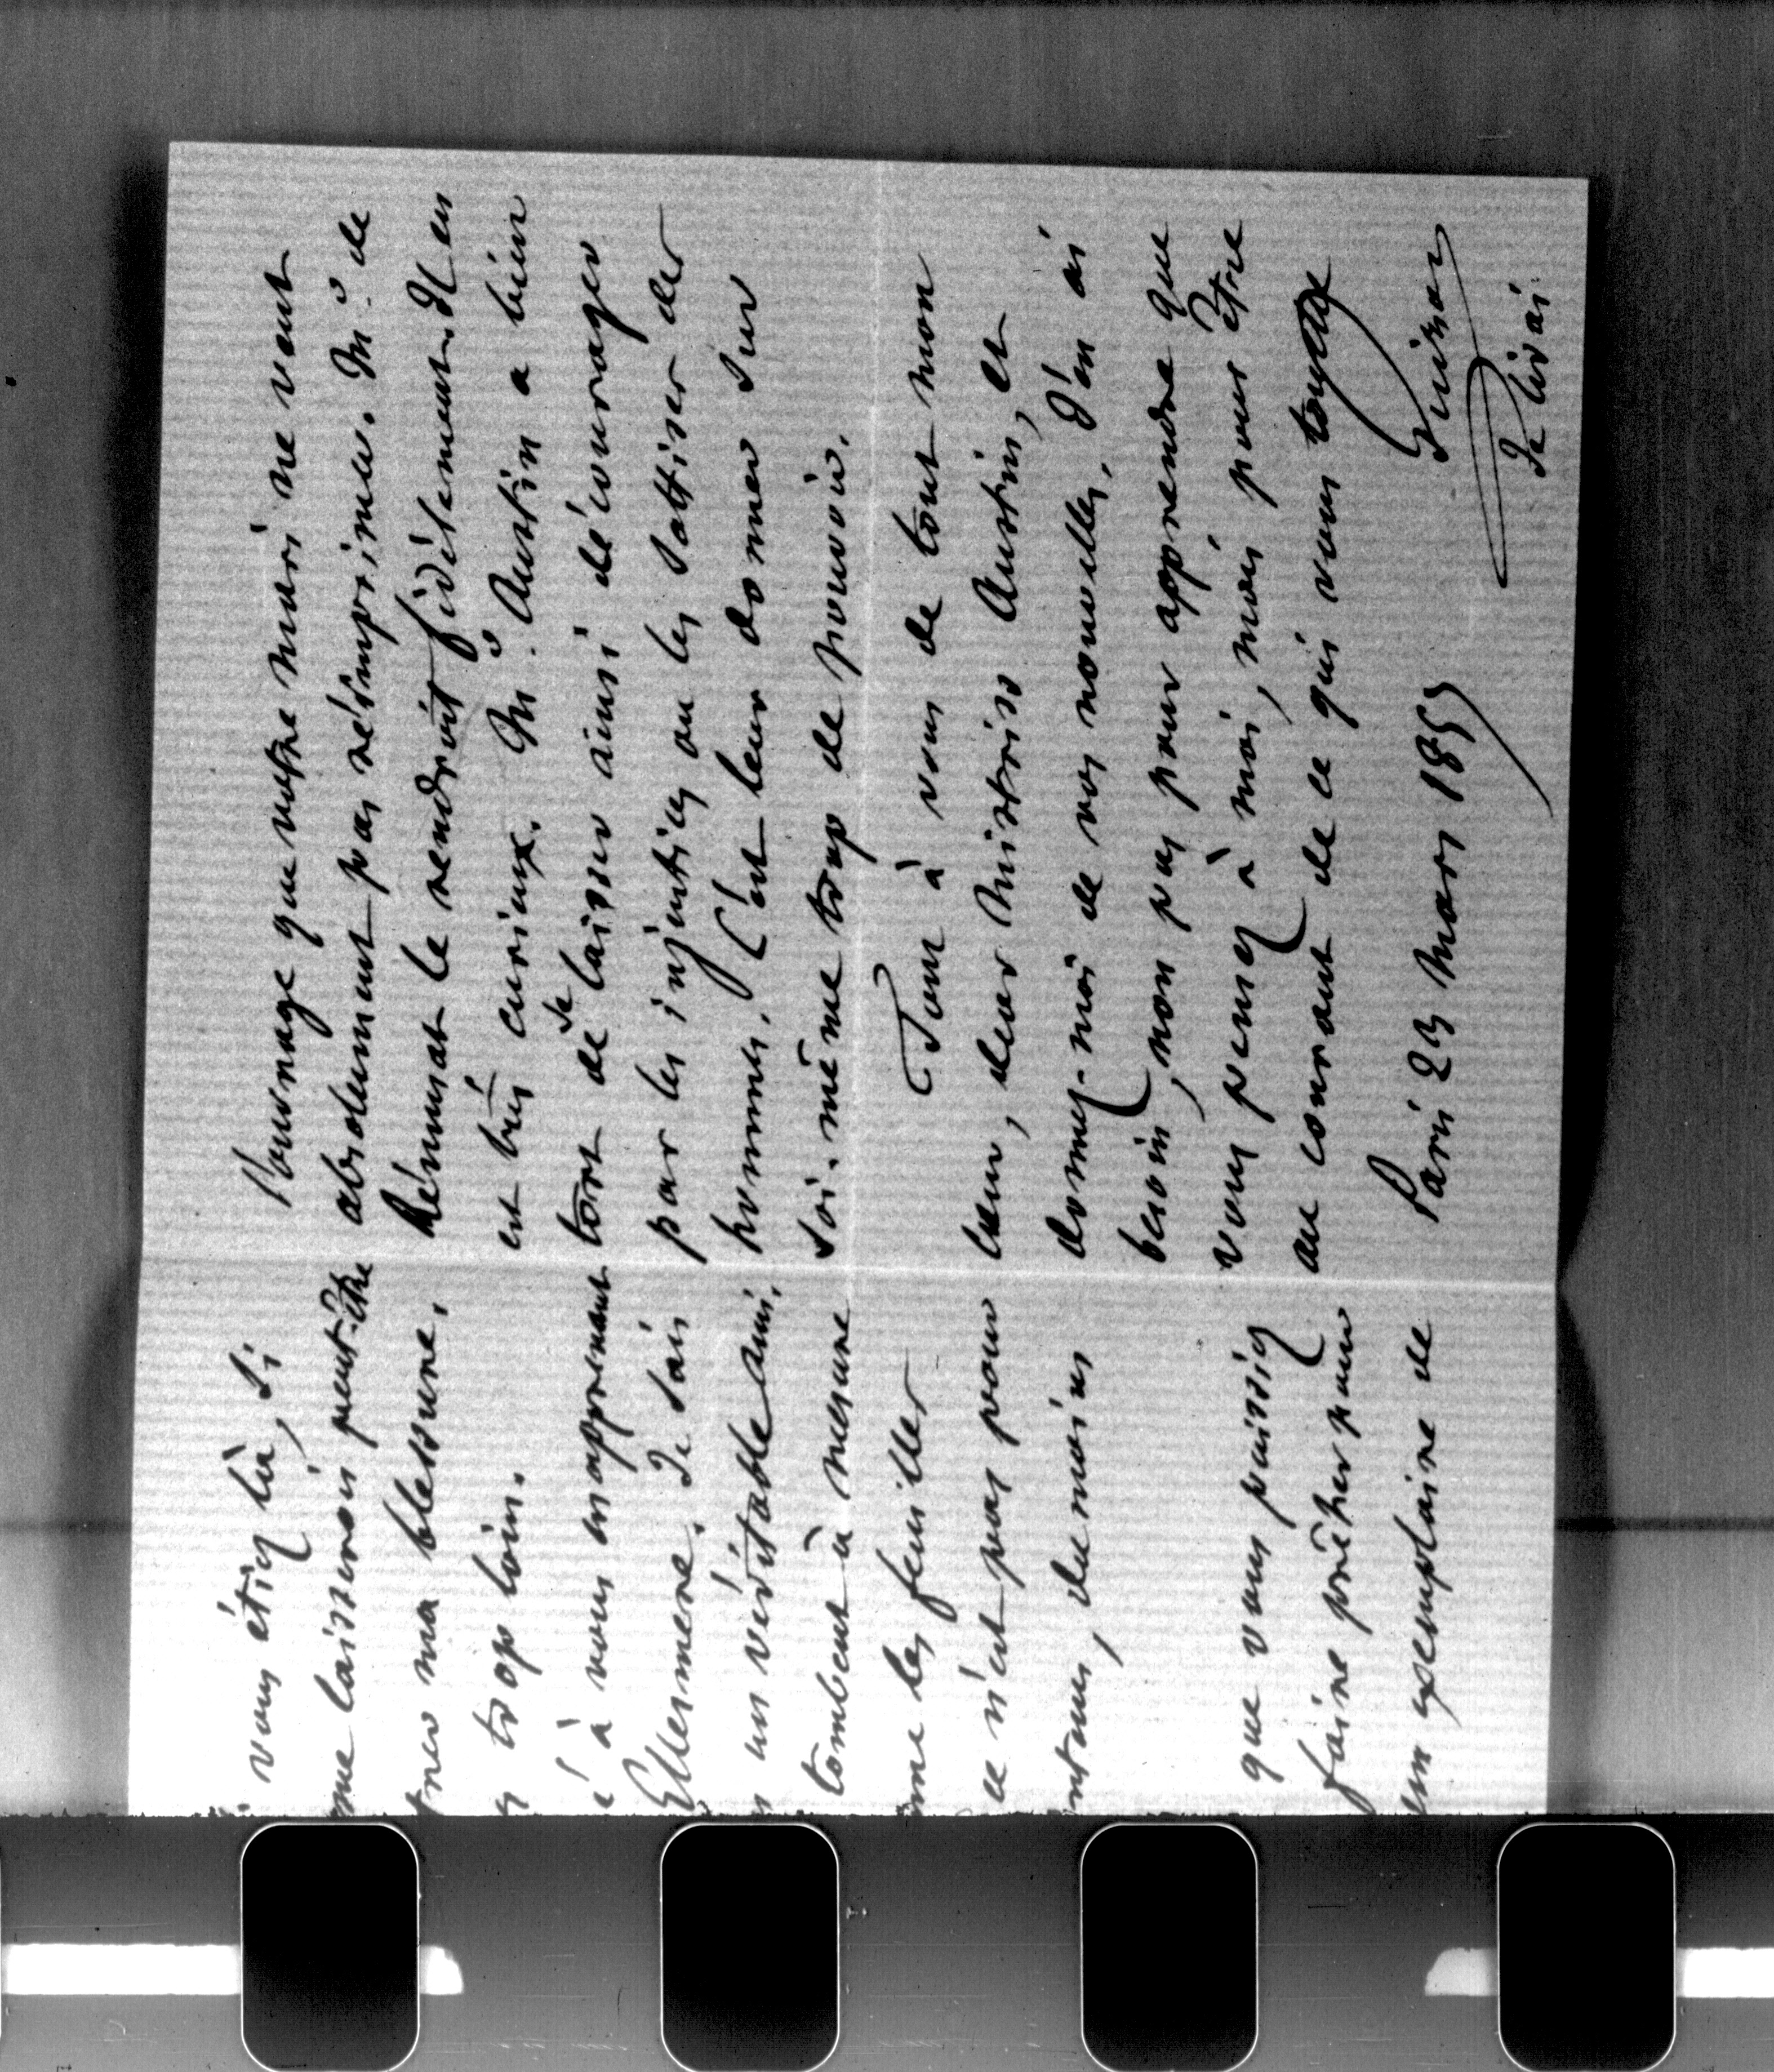 vous étiez là, si
me laisserois peut-être
ma blessure,
trop loin.
à vous en apprenant
Ellesmere. Je sais
un véritable ami,
tombent à mesure
les feuilles
ce n'est pas pour
du moins
que vous puissiez
faire prêcher pour
un exemplaire de
l'ouvrage que votre mari ne veut
absolument pas réimprimer. Mr. de
Rémusat le rendroit fidèlement. Il en
est très curieux. Mr. Austin a bien
tort de se laisser ainsi décourager
par les injustices ou les sottises des
hommes. C'est leur donner sur
soi-même trop de pouvoir.
Tout à vous de tout mon
cœur, dear Mistriss Austin, et
donnez-moi de vos nouvelles. J'en ai
besoin, non pas pour apprendre que
vous pensez à moi, mais pour être
au courant de ce qui vous touche
Guizot
Paris 23 Mars 1855